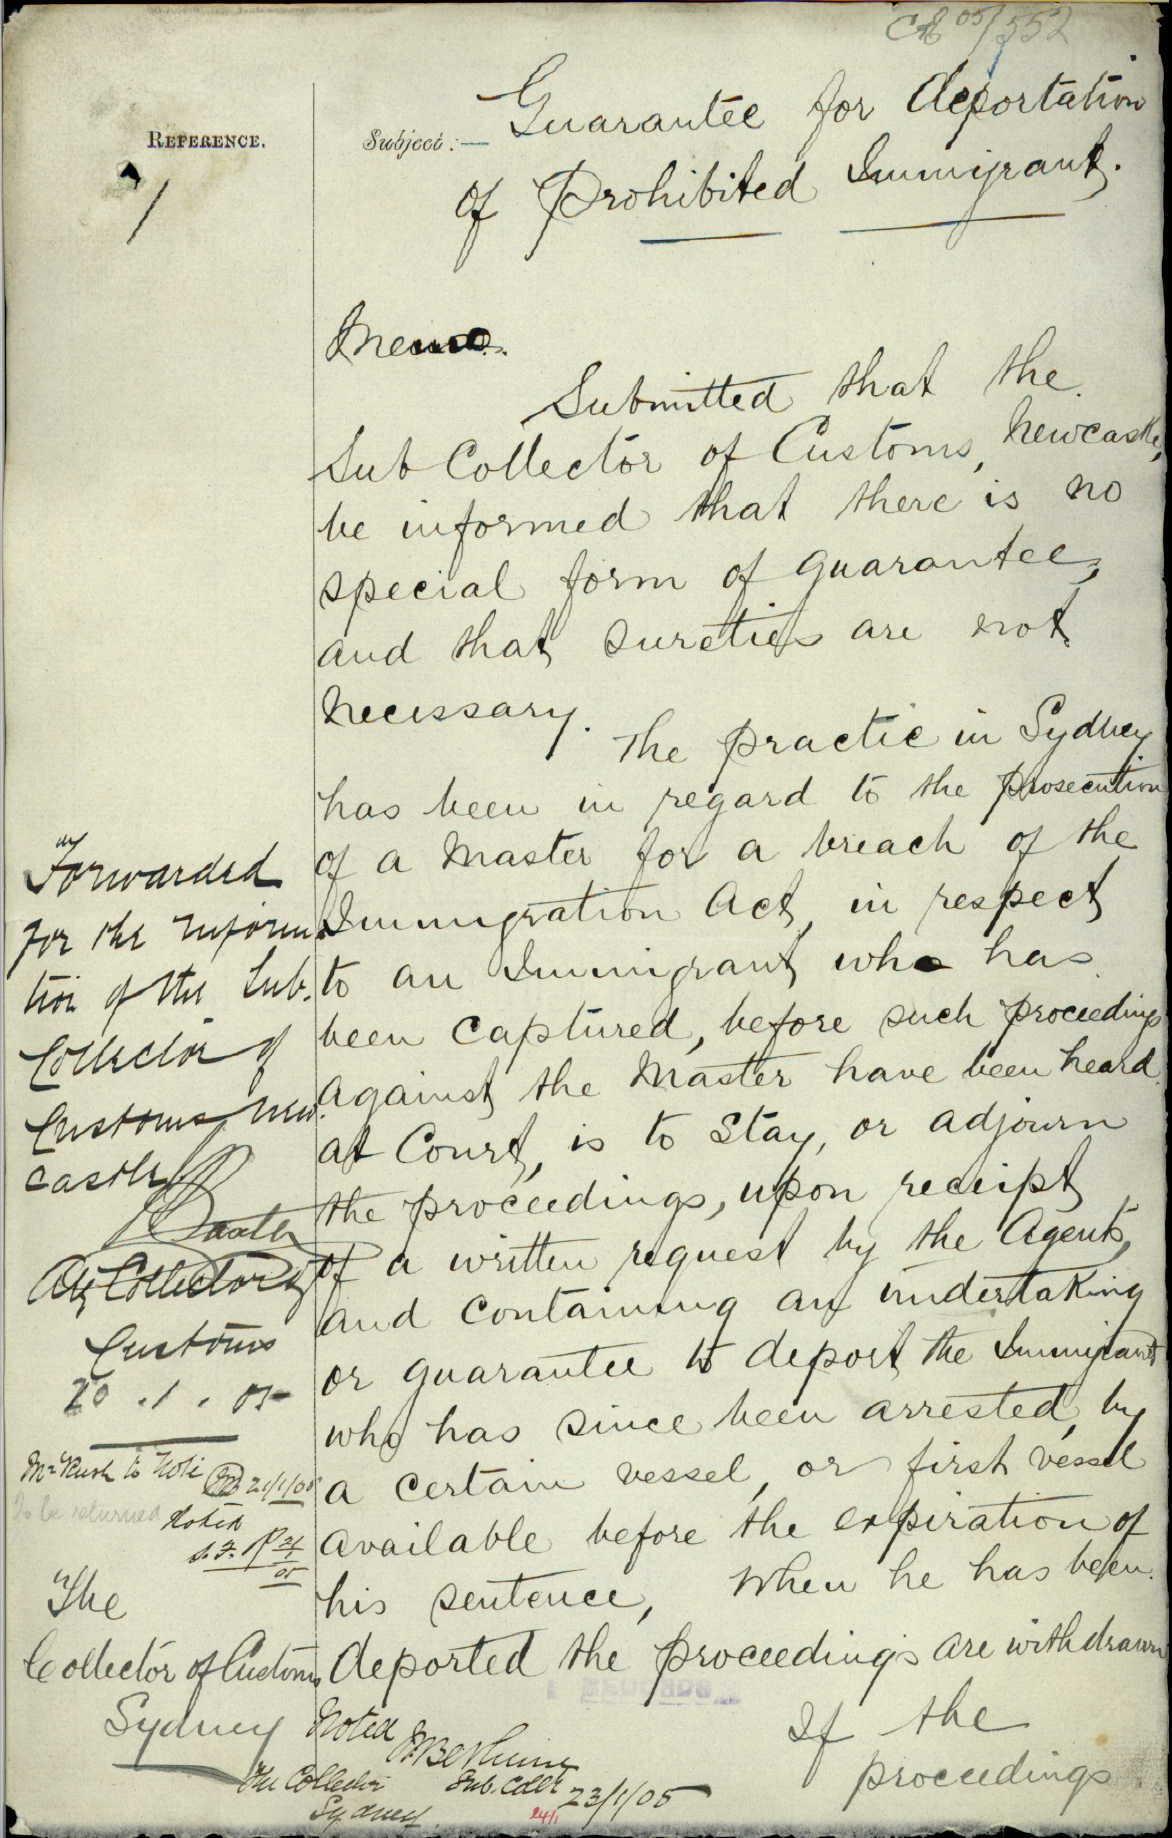 05/552
REFERENCE.
1
Subject:— Guarantee for deportation
of Prohibited Immigrant.
Memo.
Submitted that the
Sub Collector of Customs, Newcastle,
be informed that there is no
special form of guarantee,
and that sureties are not
necessary.
The practice in Sydney
has been in regard to the prosecution
of a Master for a breach of the
Immigration Act, in respect
to an Immigrant who has
been captured, before such proceedings
against the Master have been heard
at Court, is to stay, or adjourn
the proceedings, upon receipt
of a written request by the Agents,
and containing an undertaking
or guarantee to deport the Immigrant
who has since been arrested, by
a certain vessel, or first vessel
available before the expiration of
his sentence, When he has been
deported the proceedings are withdrawn
If the
proceedings
Forwarded
for the informa
tion of the Sub.
Collector of
Customs New
castle
Baxter
Actg Collector of
Customs
20.1.05
Mr Rush to Note 21/1/05
To be returned
Noted
The
Collector of Customs
Sydney
Noted
Sub. Collr 23/1/05
The Collector
Sydney.
24/1